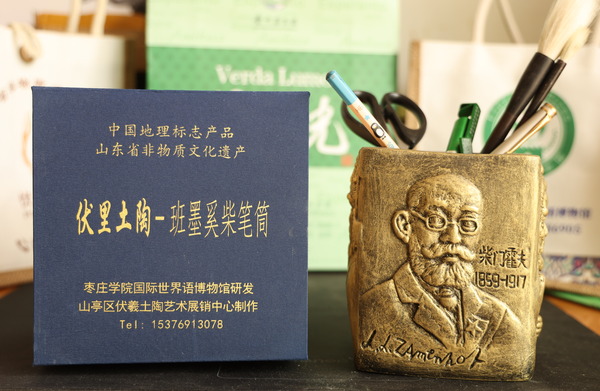 中国地理标志产品
山东省非物质文化遗产
伏里土陶-班墨奚柴笔筒
枣庄学院国际世界语博物馆研发
山亭区伏羲土陶艺术展销中心制作
Tel: 15376913078
Verda Lumo
柴门霍夫
1859-1917
L.L.Zamenhof